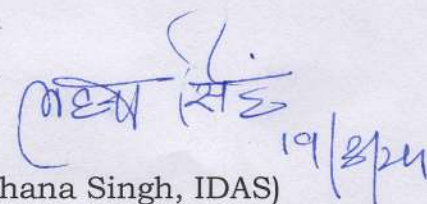 सिंह
19/8/24
hana Singh, IDAS)